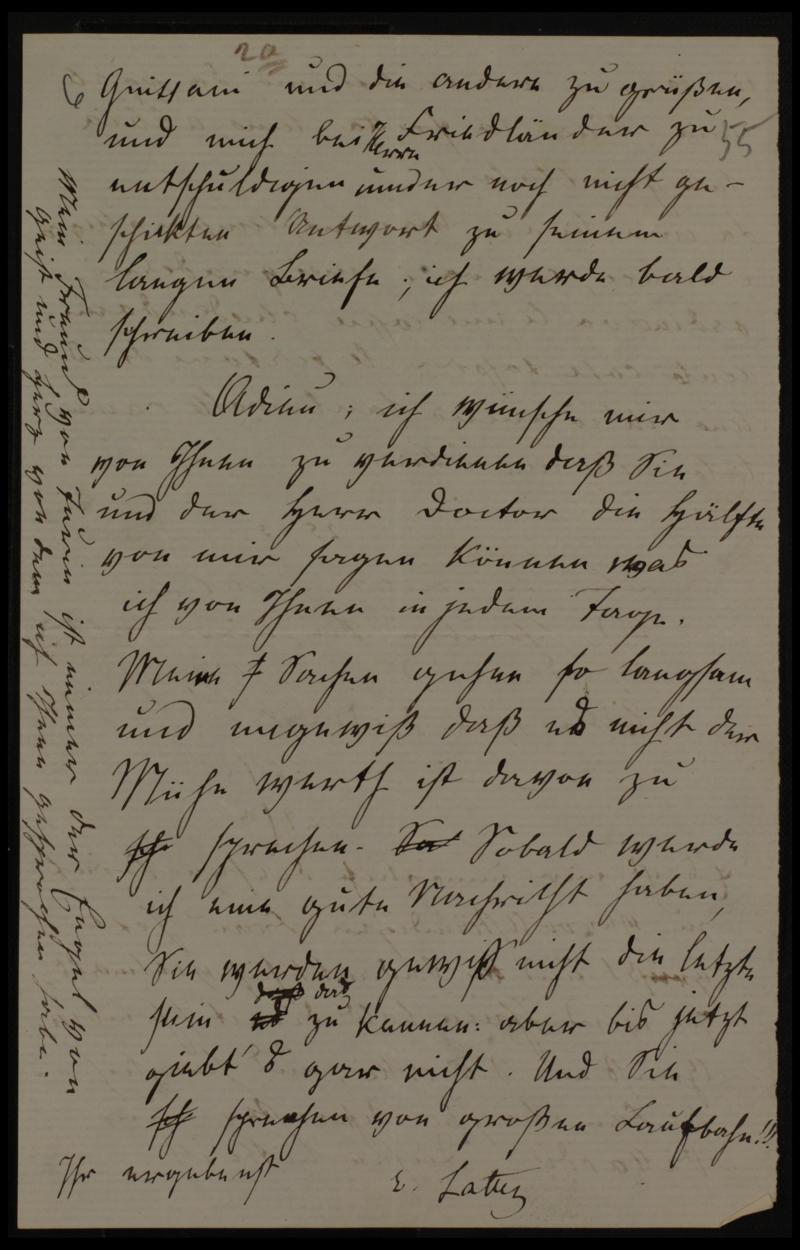 20
6 Guittani und die andere zu grüßen,
und mich bei Herrn Friedländer zu 55
entschuldigen der noch nicht ge-
schickten Antwort zu seinem
langen Briefe; ich werde bald
schreiben.
Adieu; ich wünsche mir
von Ihnen zu verdienen daß Sie
und der Herr Doctor die Hälfte
von mir sagen können was
ich von Ihnen in jedem Tage.
Meine Sachen gehen so langsam
und ungewiß daß es nicht der
Mühe werth ist davon zu
sprechen. Sobald werde
ich eine gute Nachricht haben,
Sie werden gewiß nicht die letzte
sein das zu kennen: aber bis jetzt
giebt's gar nicht. Und Sie
sprechen von großen Laufbahn!!!
Ihr ergebenst
Mein Freund von Turin ist immer der Engel von
Geist und Herz von dem ich Ihnen gesprochen habe.